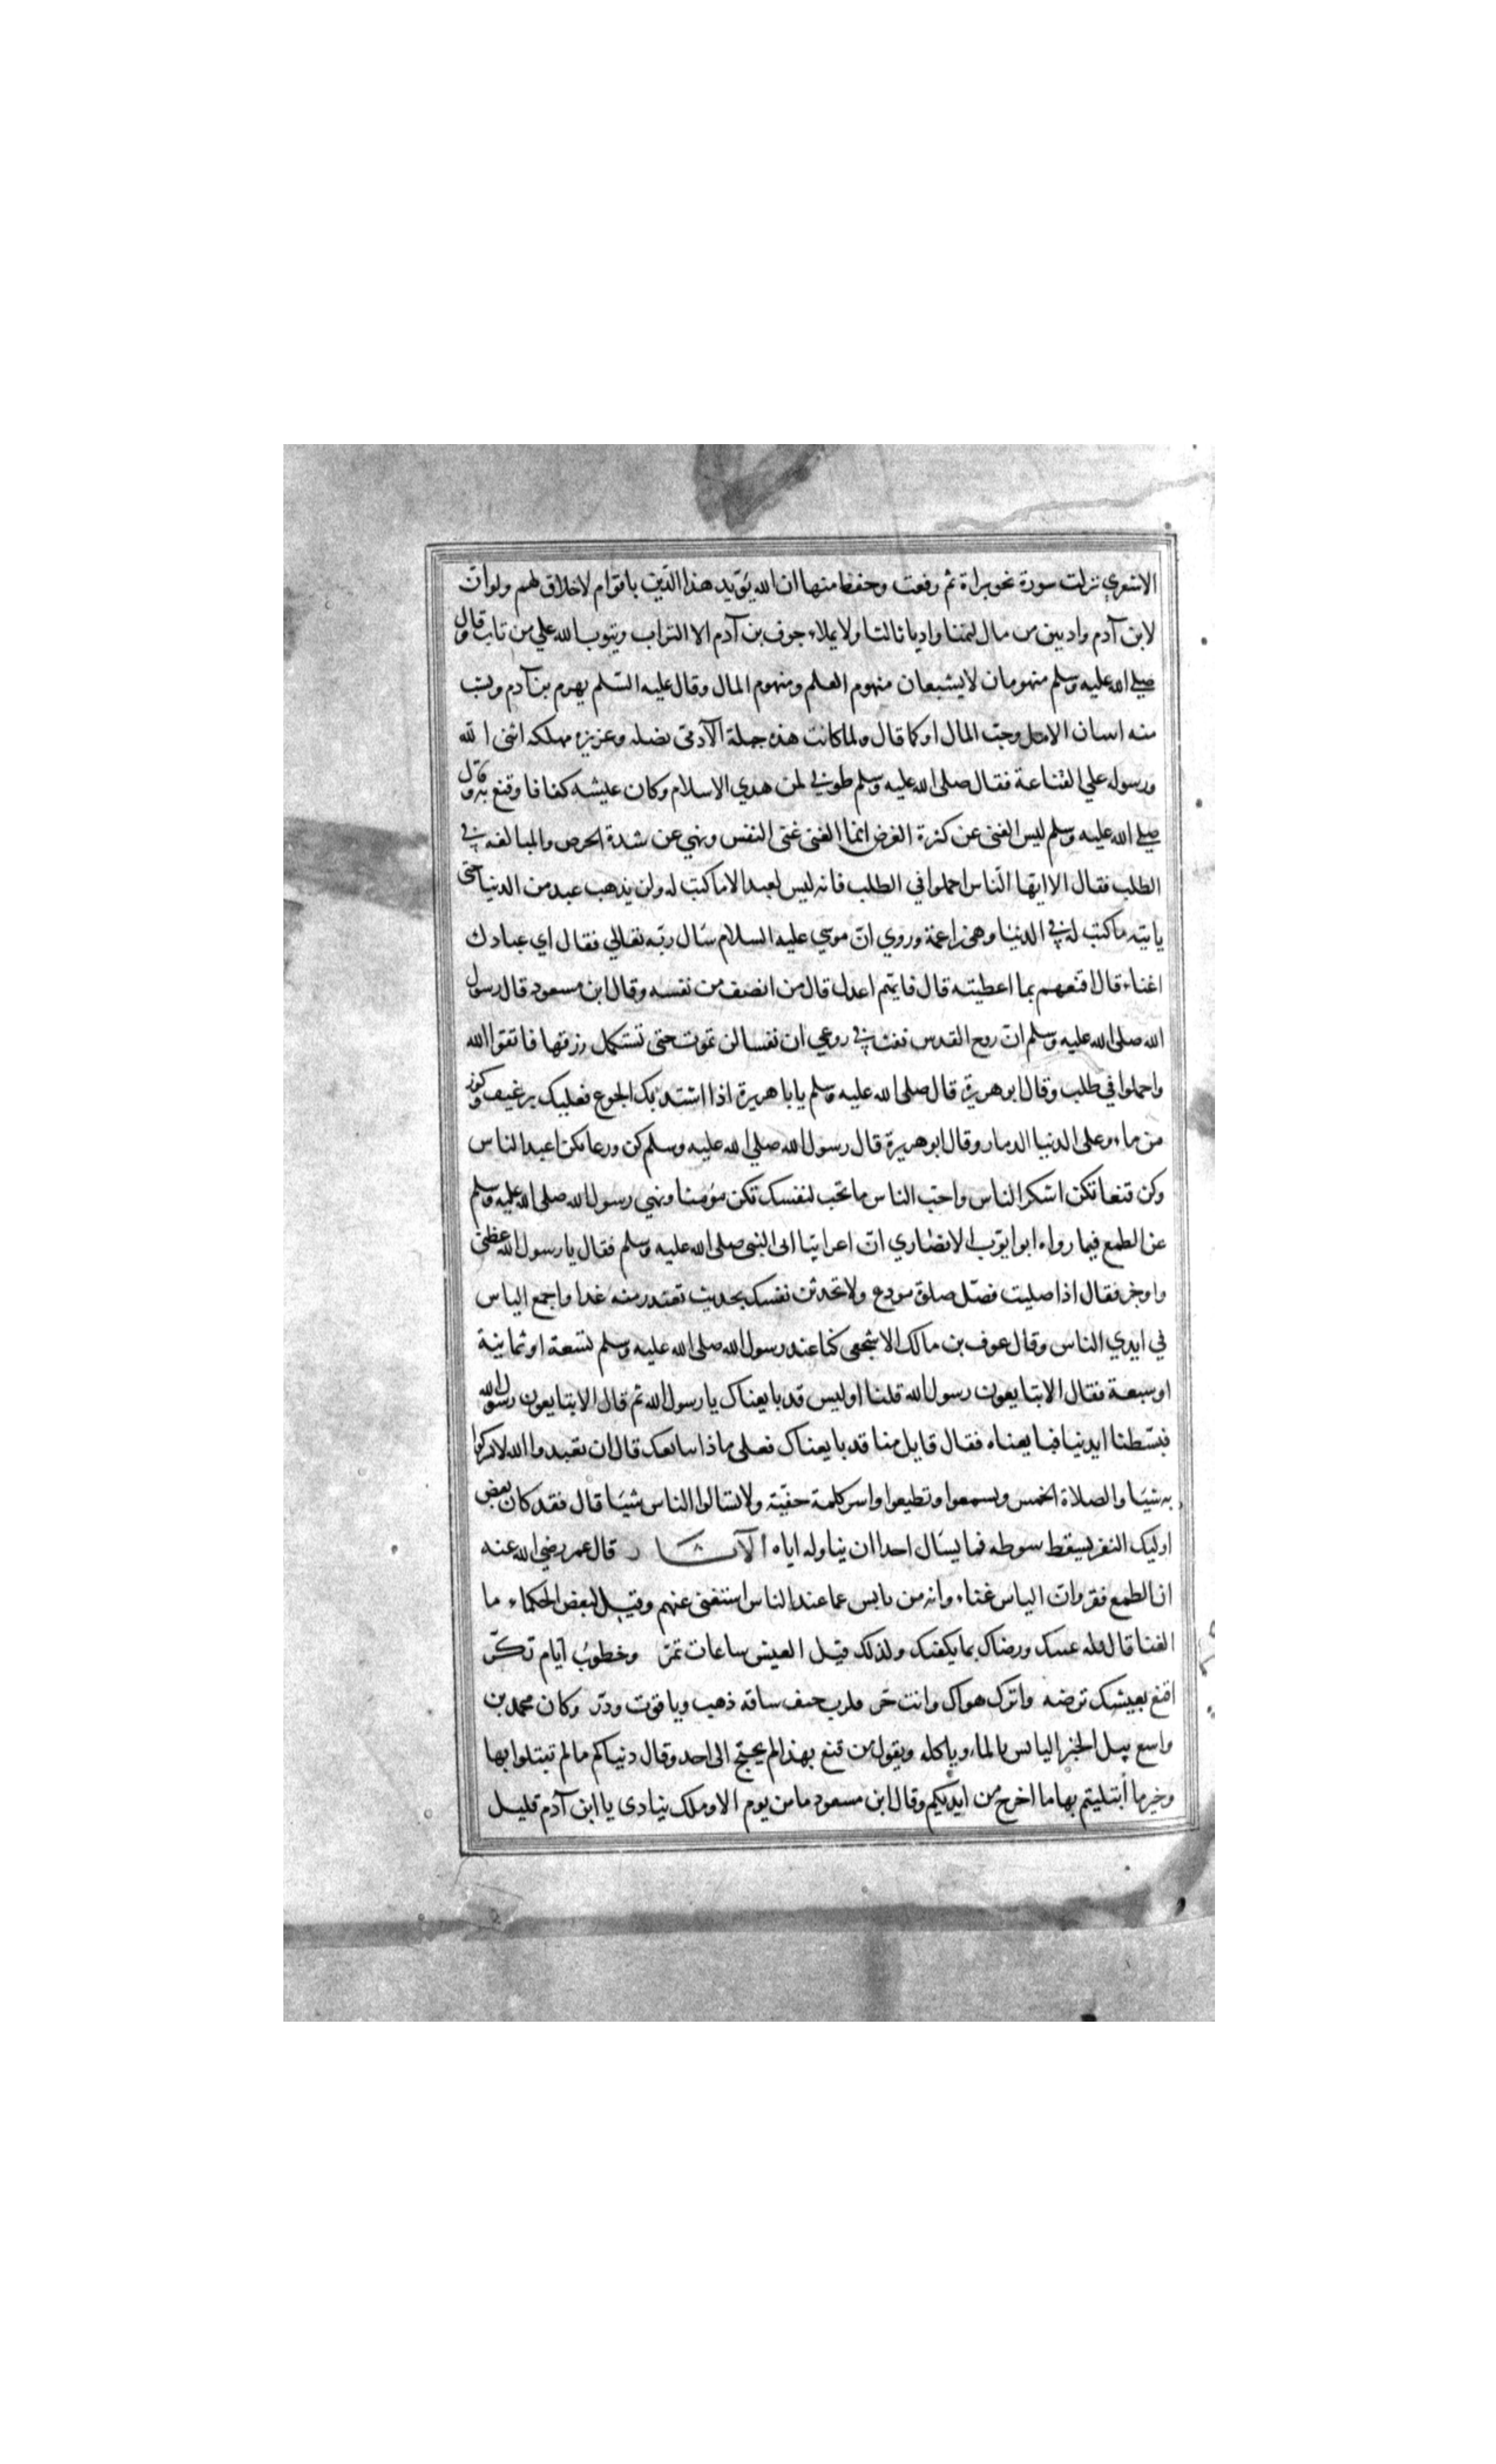 الاشعري نزلت سورة نحو براة ثم رفعت وحفظ منها ان الله يؤيد هذا الدّين باقوام لاخلاق لهم ولو انّ
لابن آدم واديين من مال لتمنا واديا ثالثا ولا يملاء جوف بن آدم الا التراب ويتوب الله علي من تاب وقال
صلي الله عليه وسلم منهومان لا يشبعان منهوم العلم ومنهوم المال وقال عليه السّلم يهرم بن آدم ويشب
منه اسان الامل وحبّ المال او كما قال ولما كانت هذه جبلة الآدمّى بضله وعزيزه مهلكه اثنى الله
ورسوله علي القناعة فقال صلى الله عليه وسلم طوبي لمن هدي الاسلام وكان عليشه كفافا وقنع به وقال
صلي الله عليه وسلم ليس الغنى عن كثرة العرض انما الغنى غنى النفس ونهي عن شدة الحرص والمبالغه في
الطلب فقال الا ايّها النّاس اجملوا في الطلب فانه ليس لعبد الا ما كتب له ولن يذهب عبد من الدنيا حتى
ياتيه ما كتب له في الدنيا وهى زاعمة وروي انّ موسي عليه السلام سال ربّه تعالي فقال اي عبادك
اغناء قال اقنعهم بما اعطيته قال فايتهم اعدل قال من انصف من نفسه وقال ابن مسعود قال رسول
الله صلى الله عليه وسلم انّ روح القدس نفث في روعي ان نفسا لن تموت حتى تستكمل رزقها فاتقوا الله
واجملوا في طلب وقال ابو هريرة قال صلى الله عليه وسلم يابا هريرة اذا اشتد بك الجوع فعليك برغيف وكوز
من ماء وعلى الدنيا الدمار وقال ابو هريرة قال رسول الله صلي الله عليه وسلم كن ورعا تكن اعبد الناس
وكن قنعا تكن اشكر الناس واحبّ الناس ما تحب لنفسك تكن مؤمنا ونهي رسول الله صلى الله عليه وسلم
عن الطمع فيما رواه ابو ايّوب الانصاري انّ اعرابيّا الى النبى صلى الله عليه وسلم فقال يا رسول الله عظنى
واوجز فقال اذا صليت فصّل صلوة مودع ولا تحدثن نفسك بحديث تعتذر منه غدا واجمع الياس
في ايدي الناس وقال عوف بن مالك الاشجعى كنا عند رسول الله صلى الله عليه وسلم تسعة او ثمانية
او سبعة فقال الا تبايعون رسول الله قلنا اوليس قد بايعناك يا رسول الله ثم قال الا تبايعون رسول الله
فبسّطنا ايدنيا فبايعناه فقال قايل منا قد بايعناك فعلى ماذا سابعك قال ان تعبدوا الله لا تشركوا
به شيئا والصلاة الخمس وتسمعوا وتطيعوا واسر كلمة حفيّة ولا تسالوا الناس شيئا قال فقد كان بعض
اوليك النفر يسقط سوطه فما يسال احدا ان يناوله اياه الآثار قال عمر رضي الله عنه
ان الطمع فقر وان الياس غناء وانه من يايس عما عند الناس استغنى عنهم وقيل لبعض الحكماء ما
الغنا قال قله عسك ورضاك بما يكفيك ولذلك قيل العيش ساعات تمرّ وخطوبُ ايّام تكرّ
اقنع بعيشك ترضه واترك هواك وانت حرّ فلرب حتف ساقه ذهب وياقوت ودرّ وكان محمد بن
واسع يبل الخبز اليابس بالماء وياكله ويقول من قنع بهذا لم يحتج الى احد وقال دنياكم ما لم تبتلوا بها
وخير ما أبتليتم بها ما اخرج من ايديكم وقال ابن مسعود ما من يوم الا وملك ينادى يا ابن آدم قليل